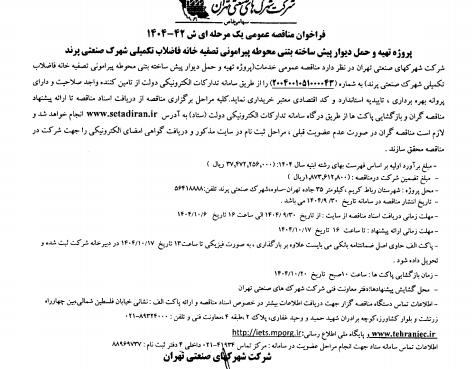 شرکت شهرکهای صنعتی تهران
فراخوان مناقصه عمومی یک مرحله ای ش ۴۲-۱۴۰۴
پروژه تهیه و حمل دیوار پیش ساخته بتنی محوطه پیرامونی تصفیه خانه فاضلاب تکمیلی شهرک صنعتی پرند
شرکت شهرکهای صنعتی تهران در نظر دارد مناقصه عمومی خدمات(پروژه تهیه و حمل دیوار پیش ساخته بتنی محوطه پیرامونی تصفیه خانه فاضلاب
تکمیلی شهرک صنعتی پرند) به شماره (۲۰۰۴۰۰۱۰۵۱۰۰۰۰۴۳) را از طریق سامانه تدارکات الکترونیکی دولت از تامین کننده واجد صلاحیت و دارای
پروانه بهره برداری ، تاییدیه استاندارد و کد اقتصادی معتبر خریداری نماید.کلیه مراحل برگزاری مناقصه از دریافت اسناد مناقصه تا ارائه پیشنهاد
مناقصه گران و بازگشایی پاکت ها از طریق درگاه سامانه تدارکات الکترونیکی دولت (ستاد) به آدرس www.setadiran.ir انجام خواهد شد و
لازم است مناقصه گران در صورت عدم عضویت قبلی ، مراحل ثبت نام در سایت مذکور و دریافت گواهی امضای الکترونیکی را جهت شرکت در
مناقصه محقق سازند .
- مبلغ برآورد اولیه بر اساس فهرست بهای رشته ابنیه سال ۱۴۰۴: (۳۷,۴۷۲,۲۵۶,۰۰۰ ریال )
- مبلغ تضمین شرکت درمناقصه : (۱,۸۷۳,۶۱۲,۸۰۰ریال)
- محل پروژه : شهرستان رباط کریم ،کیلومتر ۳۵ جاده تهران-ساوه،شهرک صنعتی پرند تلفن:۵۶۴۱۸۸۸۸
- تاریخ انتشار مناقصه در سامانه تاریخ ۱۴۰۴/۹/۳۰ می باشد .
- مهلت زمانی دریافت اسناد مناقصه از سایت : از تاریخ ۱۴۰۴/۹/۳۰ الی ساعت ۱۶ تاریخ ۱۴۰۴/۱۰/۶
- مهلت زمانی ارائه پیشنهاد : تا ساعت ۱۶ تاریخ ۱۴۰۴/۱۰/۱۷
- پاکت الف حاوی اصل ضمانتنامه بانکی می بایست علاوه بر بارگذاری ، به صورت فیزیکی تا ساعت۱۳ تاریخ ۱۴۰۴/۱۰/۱۷ در دبیرخانه شرکت ثبت شده و
تحویل داده شود .
- زمان بازگشایی پاکت ها : ساعت ۱۰صبح تاریخ ۱۴۰۴/۱۰/۲۰
- محل گشایش پیشنهادها:دفتر معاونت فنی شرکت شهرک های صنعتی تهران
- اطلاعات تماس دستگاه مناقصه گزار جهت دریافت اطلاعات بیشتر در خصوص اسناد مناقصه و ارائه پاکت الف : نشانی خیابان فلسطین شمالی،بین چهارراه
زرتشت و بلوار کشاورز،کوچه برادران شهید حمید و وحید غفاری، پلاک ۲ ،طبقه ۴ ،معاونت فنی و تلفن : ۸۹۳۲۴۰۰۰-۰۲۱
www.tehraniec.ir و پایگاه ملی اطلاع رسانی:http://iets.mporg.ir
اطلاعات تماس سامانه ستاد جهت انجام مراحل عضویت در سامانه : مرکز تماس ۴۱۹۳۴-۰۲۱ داخلی ۴ دفتر ثبت نام : ۸۸۹۶۹۷۳۷
شرکت شهرکهای صنعتی تهران